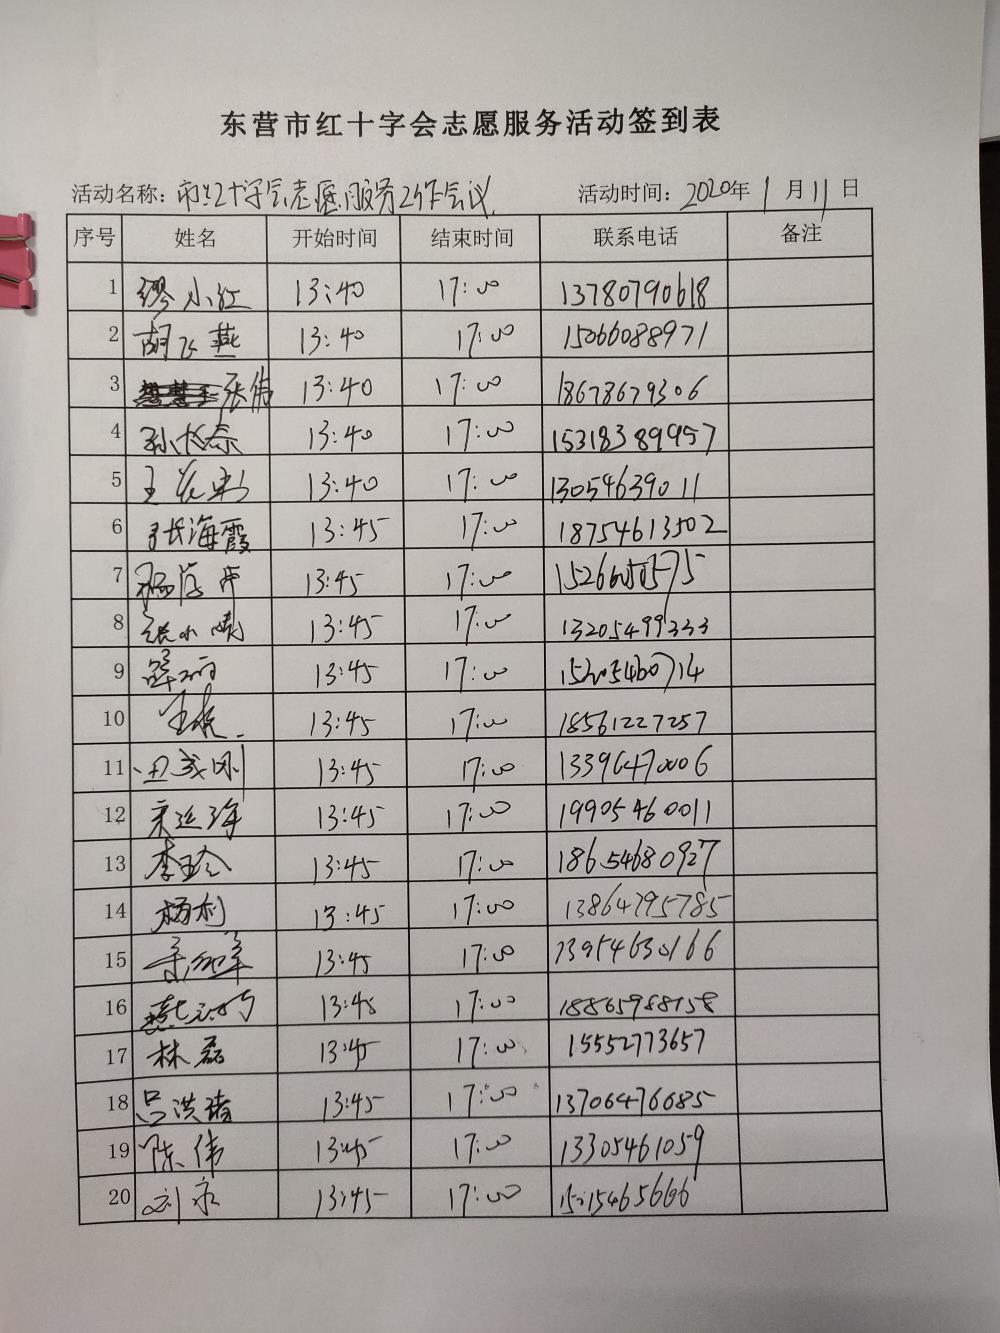 东营市红十字会志愿服务活动签到表
活动名称：市红十字会志愿服务工作会议 活动时间：2020年1月11日
序号 姓名 开始时间 结束时间 联系电话 备注
1 缪小红 13:40 17:00 13780790618
2 胡飞燕 13:40 17:00 15066088971
3 张伟 13:40 17:00 18678679306
4 孙长泰 13:40 17:00 15318389957
5 王 13:40 17:00 13054639011
6 张海霞 13:45 17:00 18754613502
7 杨 13:45 17:00
8 张小晴 13:45 17:00 13205499333
9 薛丽 13:45 17:00
10 13:45 17:00 18561227257
11 田成刚 13:45 17:00 13396470006
12 13:45 17:00 19905460011
13 李玲 13:45 17:00 18654680927
14 杨利 13:45 17:00 13864795785
15 13:45 17:00 13954630166
16 13:45 17:00 18865988158
17 林磊 13:45 17:00 15552773657
18 吕洪 13:45 17:00 13706476685
19 陈伟 13:45 17:00 13305461059
20 刘永 13:45 17:00